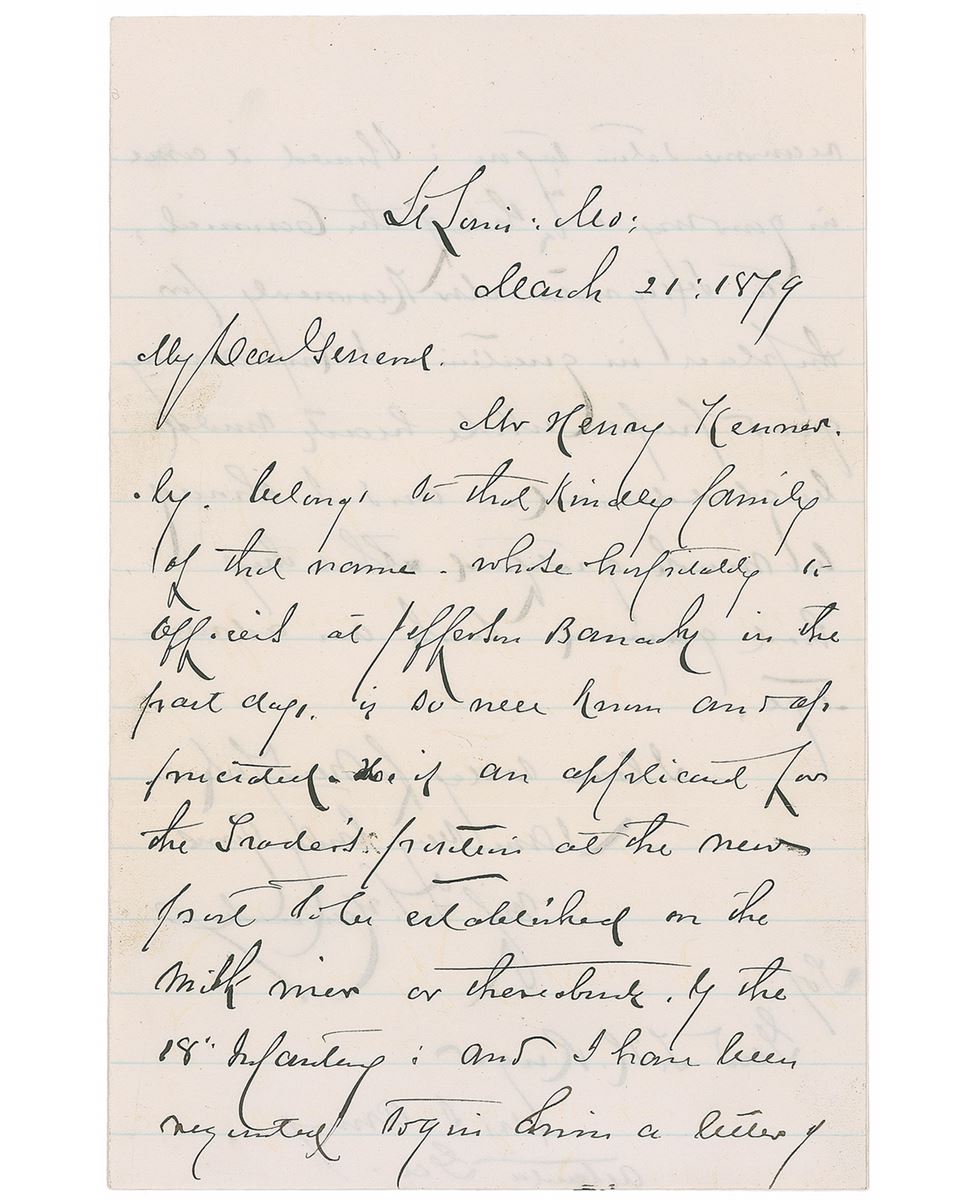 St Louis: Mo:
March 21: 1879
My Dear General.
Mr Henry Kenner.
.ly. belongs to that Kindly family
of that name. whose hospitality to
officers at Jefferson Barracks in the
past days. is so well known and ap
preciated. He is an applicant for
the Trader's position at the new
post to be established on the
Milk river or thereabouts. by the
18" Infantry: and I have been
requested to give him a letter of